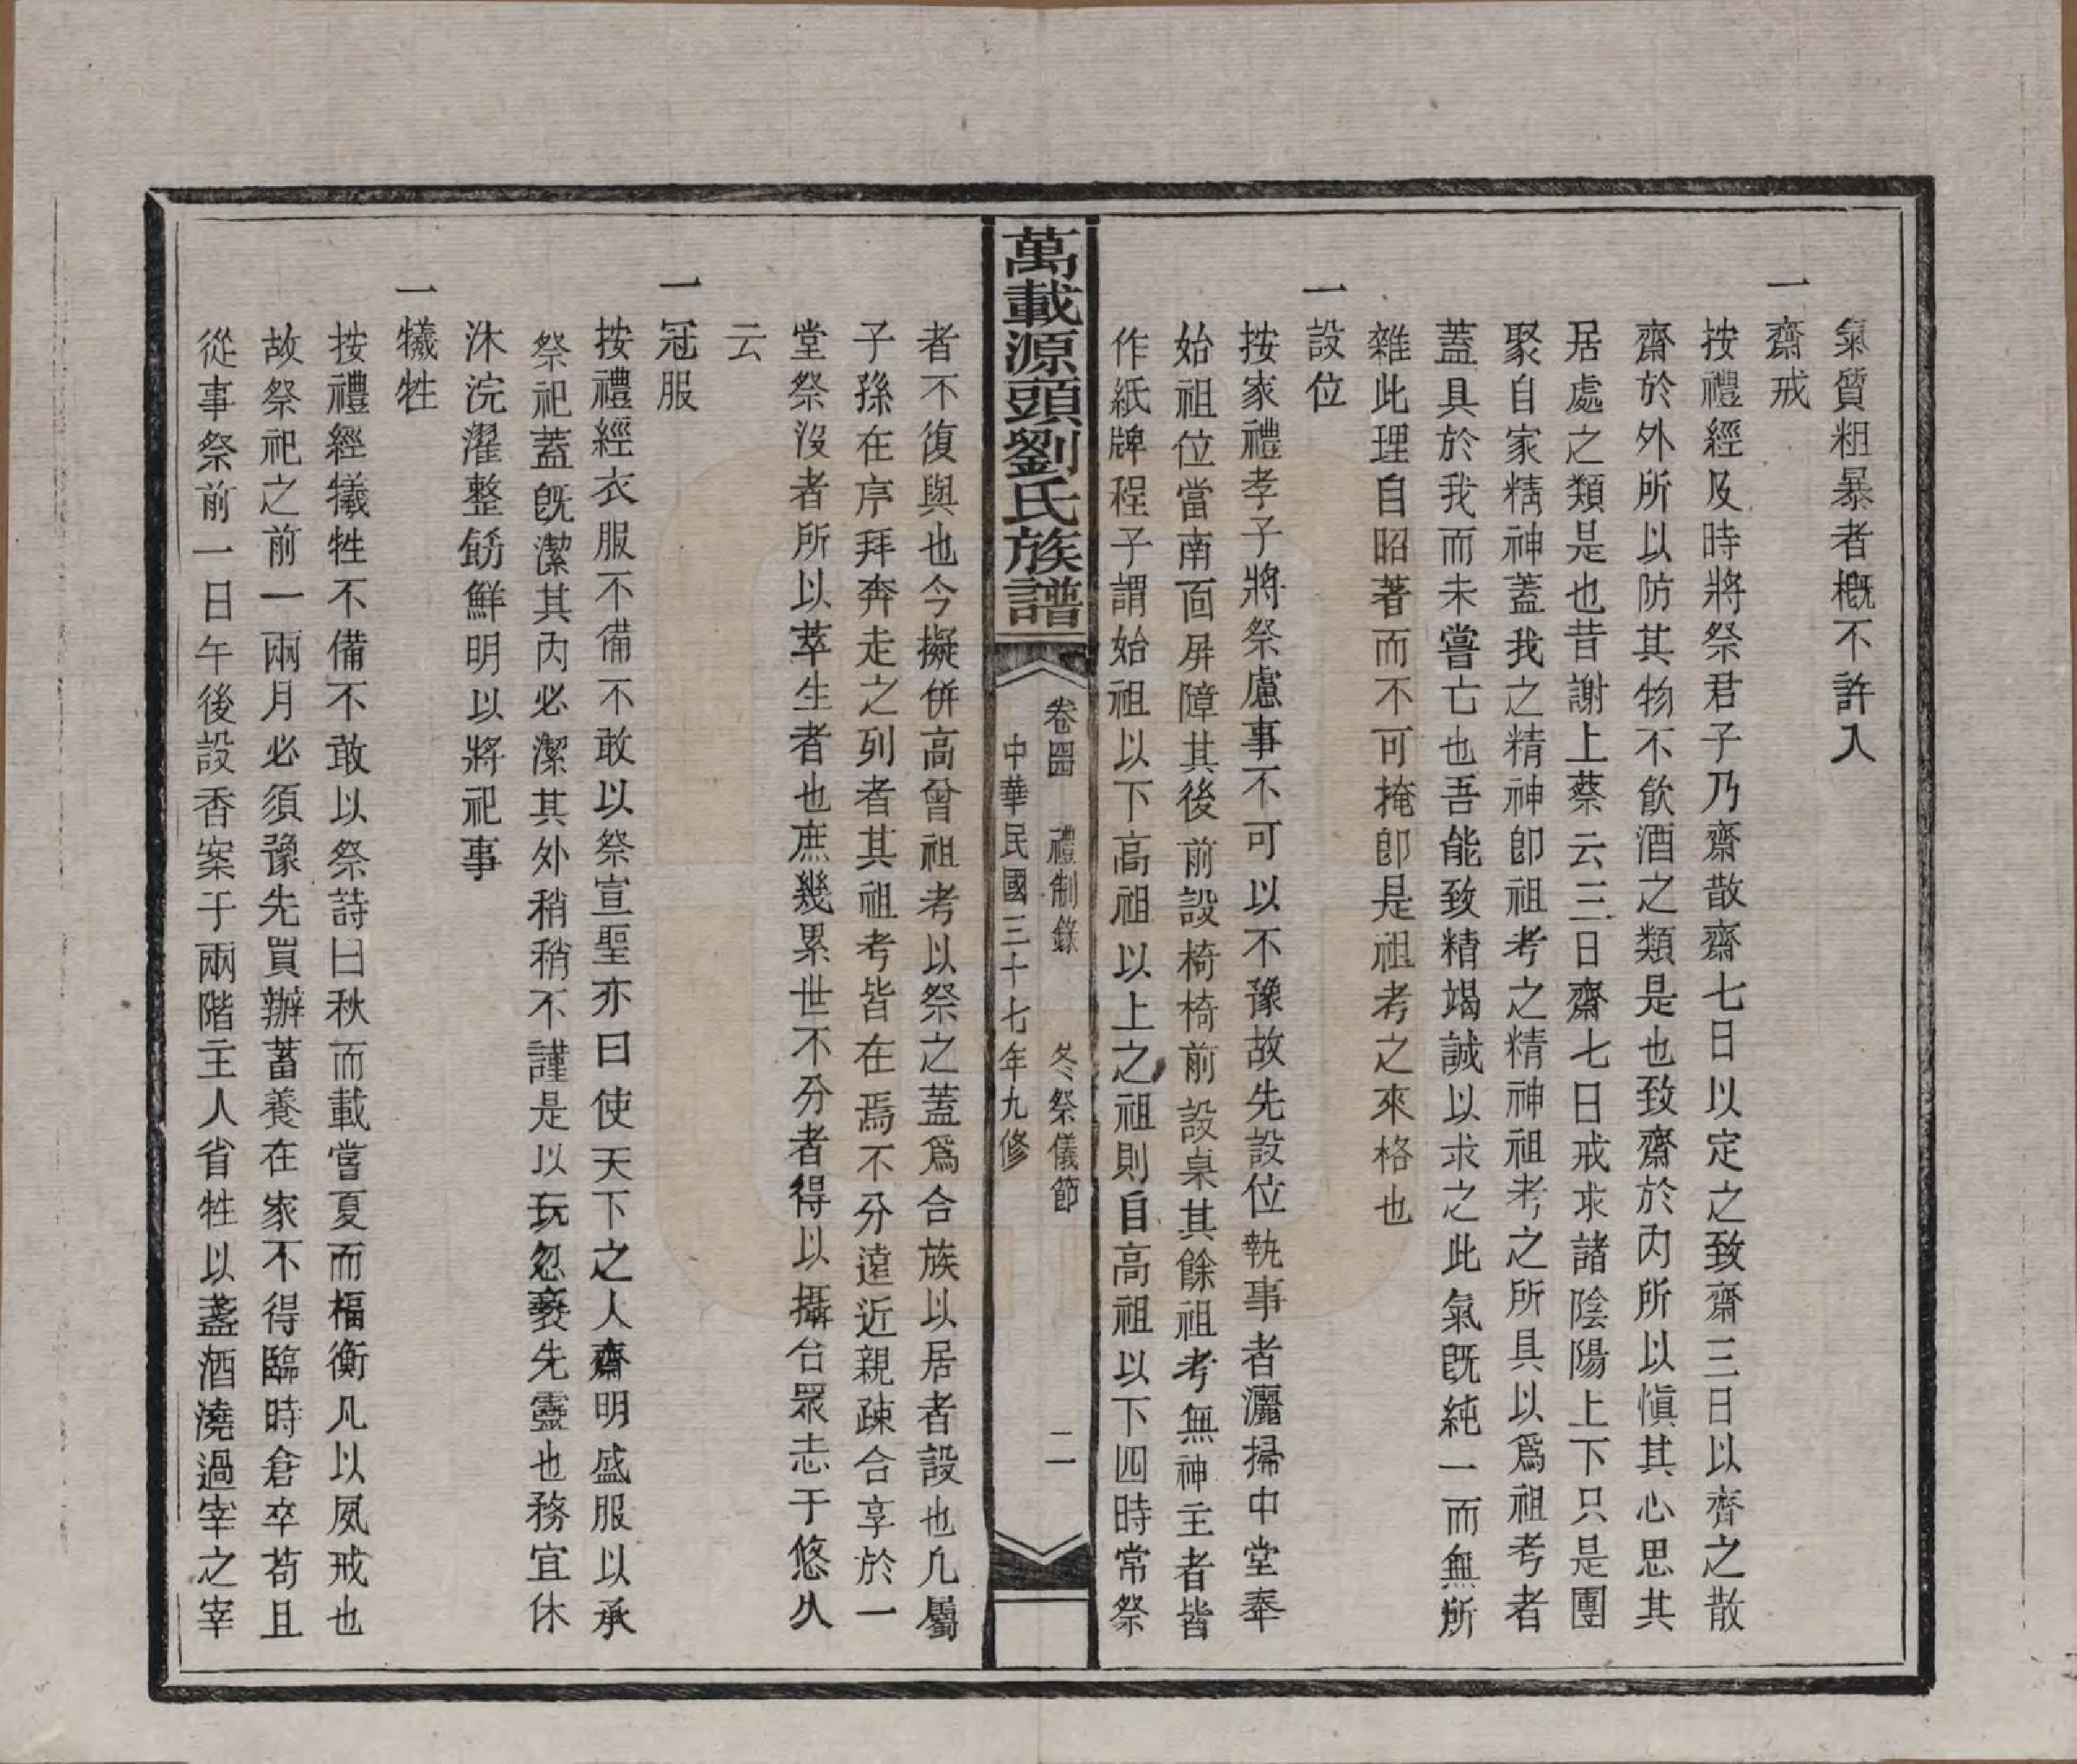 氣質粗暴者槪不許入
一齋戒
按禮經及時將祭君子乃齋散齋七日以定之致齋三日以齊之散
齋於外所以防其物不飮酒之類是也致齋於內所以愼其心思其
居處之類是也昔謝上蔡云三日齋七日戒求諸陰陽上下只是團
聚自家精神蓋我之精神卽祖考之精神祖考之所具以爲祖考者
蓋具於我而未嘗亡也吾能致精竭誠以求之此氣旣純一而無所
雜此理自昭著而不可掩卽是祖考之來格也
一設位
按家禮孝子將祭慮事不可以不豫故先設位執事者灑掃中堂奉
始祖位當南面屏障其後前設椅椅前設桌其餘祖考無神主者皆
作紙牌程子謂始祖以下高祖以上之祖則自高祖以下四時常祭
萬載源頭劉氏族譜
卷四 禮制錄 冬祭儀節 二
中華民國三十七年九修
者不復與也今擬併高曾祖考以祭之蓋爲合族以居者設也凡屬
子孫在序拜奔走之列者其祖考皆在焉不分遠近親疎合享於一
堂祭沒者所以萃生者也庶幾累世不分者得以攝合眾志于悠久
云
一冠服
按禮經衣服不備不敢以祭宣聖亦曰使天下之人齋明盛服以承
祭祀蓋旣潔其內必潔其外稍稍不謹是以玩忽褻先靈也務宜休
沐浣濯整飭鮮明以將祀事
一犧牲
按禮經犧牲不備不敢以祭詩曰秋而載嘗夏而楅衡凡以夙戒也
故祭祀之前一兩月必須豫先買辦蓄養在家不得臨時倉卒苟且
從事祭前一日午後設香案于兩階主人省牲以盞酒澆過宰之宰